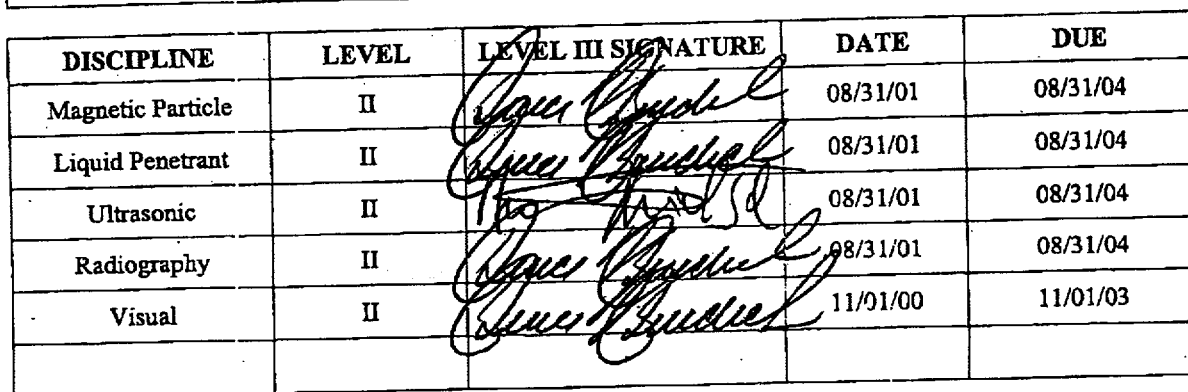 DISCIPLINE LEVEL LEVEL III SIGNATURE DATE DUE
Magnetic Particle II 08/31/01 08/31/04
Liquid Penetrant II 08/31/01 08/31/04
Ultrasonic II 08/31/01 08/31/04
Radiography II 08/31/01 08/31/04
Visual II 11/01/00 11/01/03